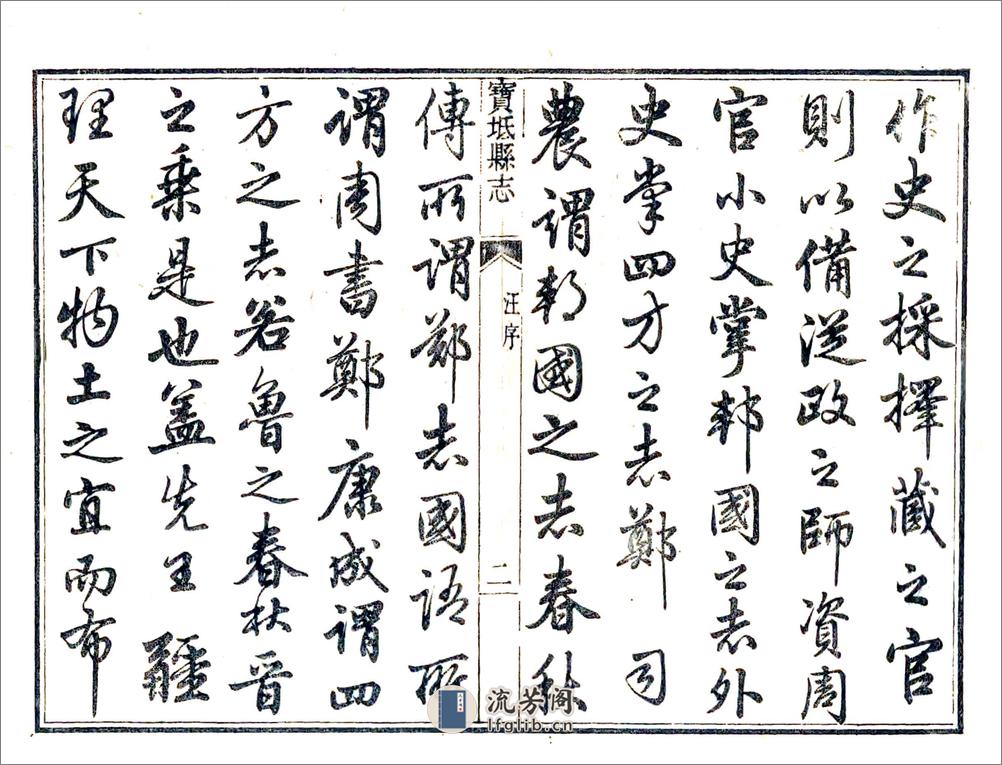 作史之採擇藏之官
則以備從政之師資周
官小史掌邦國之志外
史掌四方之志鄭司
農謂邦國之志春秋
寶坻縣志
汪序
二
傳所謂鄭志國語所
謂周書鄭康成謂四
方之志若魯之春秋晉
之乗是也盖先王疆
理天下物土之宜而布
流芳阁
lfglib.cn